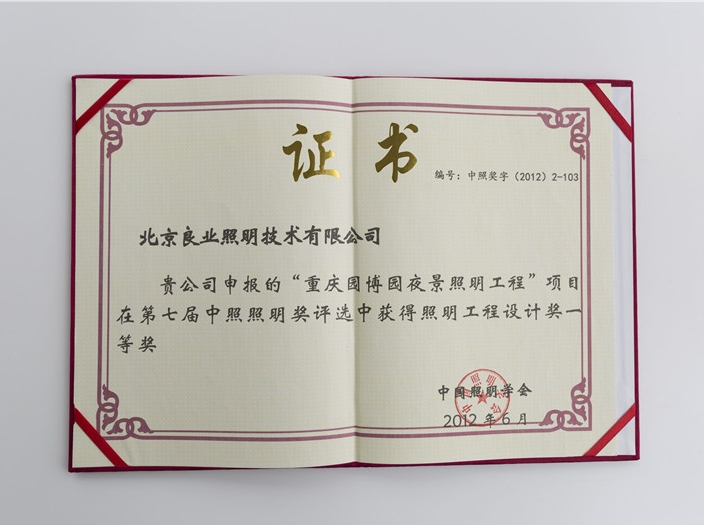 证书
编号：中照奖字（2012）2-103
北京良业照明技术有限公司
贵公司申报的“重庆园博园夜景照明工程”项目
在第七届中照照明奖评选中获得照明工程设计奖一
等奖
中国照明学会
2012 年 6 月
中国照明学会